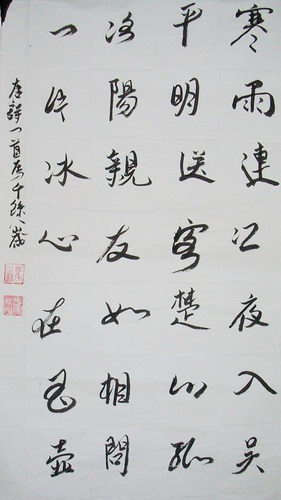 寒雨連江夜入吴
平明送客楚山孤
洛陽親友如相問
一片冰心在玉壺
唐詩一首